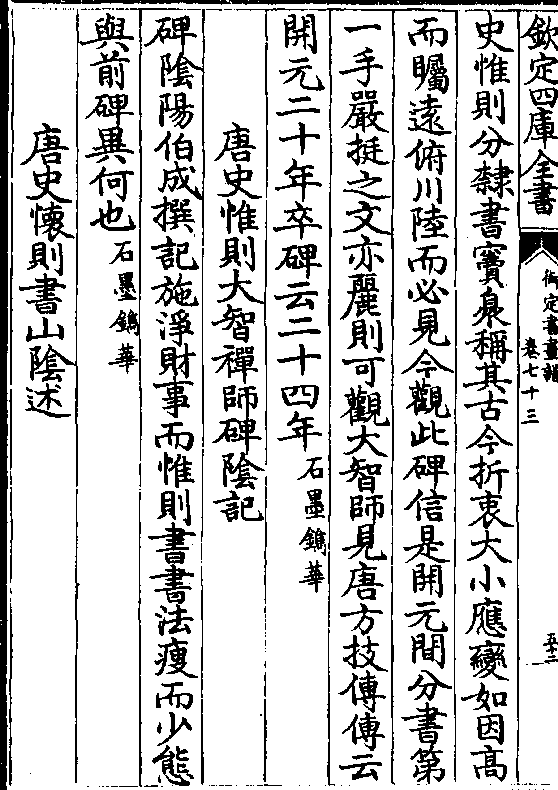 欽定四庫全書
御定書畫譜
卷七十三
五十二
史惟則分隸書竇臮稱其古今折衷大小應變如因高
而矚遠俯川陸而必見今觀此碑信是開元間分書第
一手嚴挺之文亦麗則可觀大智師見唐方技傳傳云
開元二十年卒碑云二十四年石墨鐫華
唐史惟則大智禪師碑陰記
碑陰陽伯成撰記施淨財事而惟則書書法瘦而少態
與前碑異何也石墨鐫華
唐史懷則書山陰述